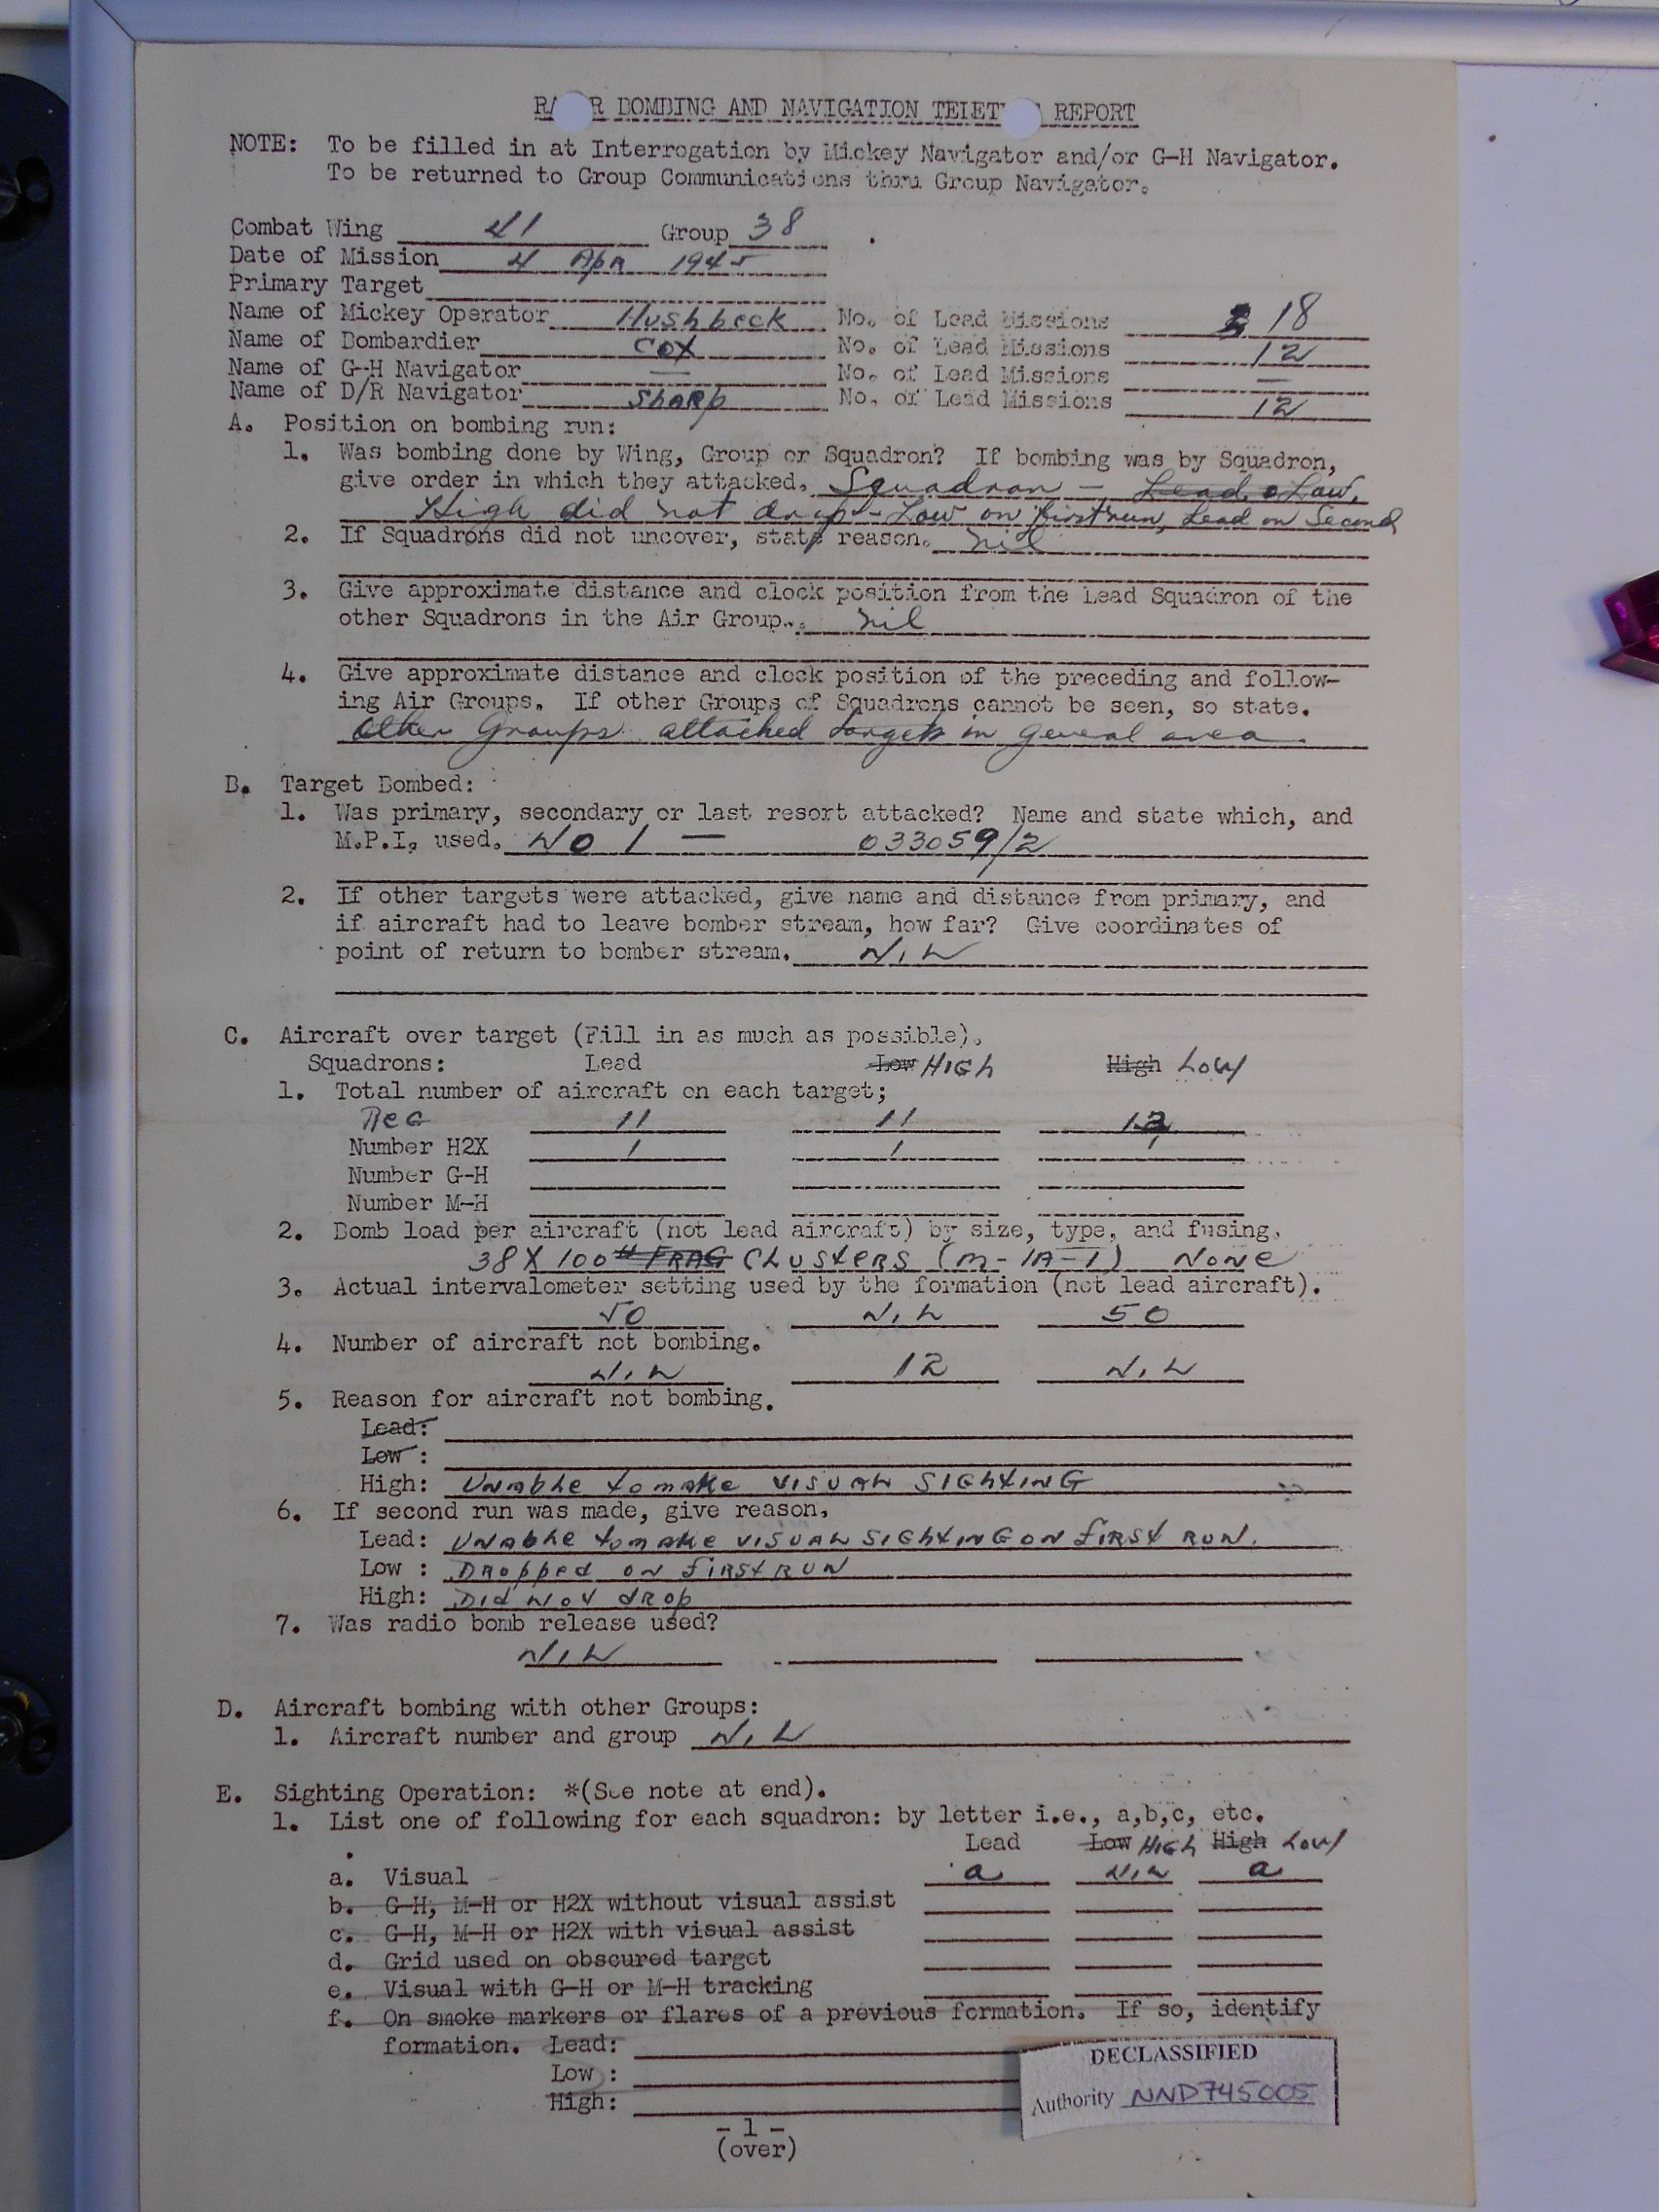 RADAR BOMBING AND NAVIGATION TELETYPE REPORT
NOTE: To be filled in at Interrogation by Mickey Navigator and/or G-H Navigator.
To be returned to Group Communications thru Group Navigator.
Combat Wing 41 Group 38
Date of Mission 4 Apr 1945
Primary Target
Name of Mickey Operator Hushbeck No. of Lead Missions 18
Name of Bombardier COX No. of Lead Missions 12
Name of G-H Navigator — No. of Lead Missions —
Name of D/R Navigator SHARP No. of Lead Missions 12
A. Position on bombing run:
1. Was bombing done by Wing, Group or Squadron? If bombing was by Squadron,
give order in which they attacked. Squadron - Lead, Low,
High did not drop - Low on first run, Lead on Second
2. If Squadrons did not uncover, state reason. Nil
3. Give approximate distance and clock position from the Lead Squadron of the
other Squadrons in the Air Group. Nil
4. Give approximate distance and clock position of the preceding and follow-
ing Air Groups. If other Groups of Squadrons cannot be seen, so state.
Other Groups attacked targets in general area.
B. Target Bombed:
1. Was primary, secondary or last resort attacked? Name and state which, and
M.P.I. used. NO 1 — 033059/2
2. If other targets were attacked, give name and distance from primary, and
if aircraft had to leave bomber stream, how far? Give coordinates of
point of return to bomber stream. NIL
C. Aircraft over target (Fill in as much as possible).
Squadrons: Lead Low HIGH High LOW
1. Total number of aircraft on each target;
REG 11 11
Number H2X 1 1
Number G-H
Number M-H
2. Bomb load per aircraft (not lead aircraft) by size, type, and fusing.
38 X 100# FRAG CLUSTERS (M-1A-1) NONE
3. Actual intervalometer setting used by the formation (not lead aircraft).
50 NIL 50
4. Number of aircraft not bombing.
NIL 12 NIL
5. Reason for aircraft not bombing.
Lead:
Low :
High: UNABLE TO MAKE VISUAL SIGHTING
6. If second run was made, give reason.
Lead: UNABLE TO MAKE VISUAL SIGHTING ON FIRST RUN.
Low : DROPPED ON FIRST RUN
High: DID NOT DROP
7. Was radio bomb release used?
NIL
D. Aircraft bombing with other Groups:
1. Aircraft number and group NIL
E. Sighting Operation: *(See note at end).
1. List one of following for each squadron: by letter i.e., a,b,c, etc.
Lead Low HIGH High LOW
a. Visual a NIL a
b. G-H, M-H or H2X without visual assist
c. G-H, M-H or H2X with visual assist
d. Grid used on obscured target
e. Visual with G-H or M-H tracking
f. On smoke markers or flares of a previous formation. If so, identify
formation. Lead:
Low :
High:
DECLASSIFIED
Authority NND745005
- 1 -
(over)